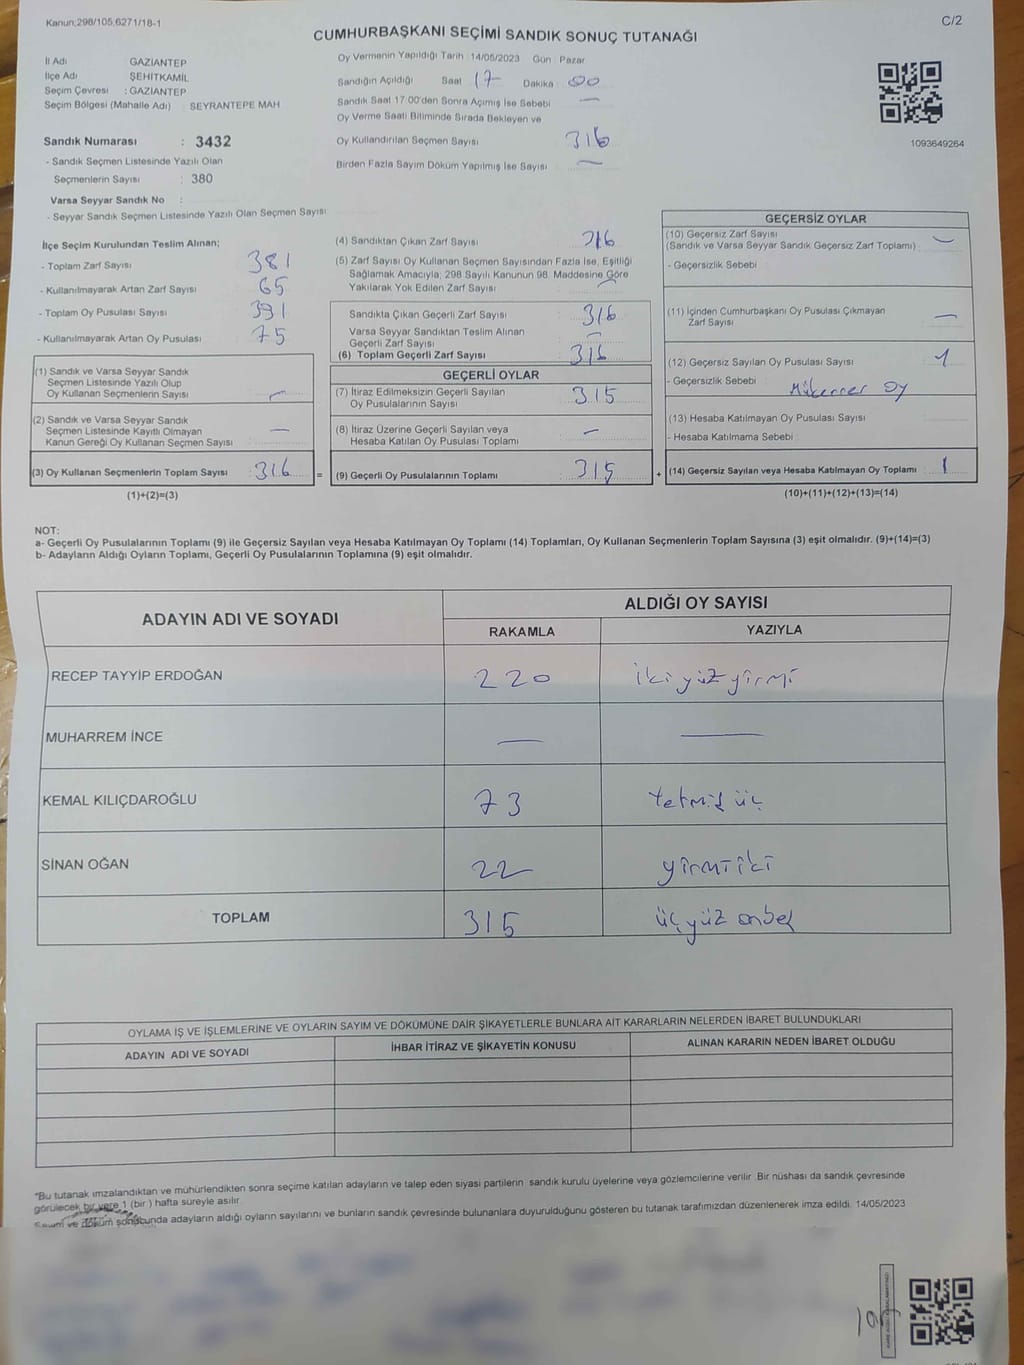 Kanun;298/105,6271/18-1
C/2
CUMHURBAŞKANI SEÇİMİ SANDIK SONUÇ TUTANAĞI
İl Adı GAZİANTEP
İlçe Adı ŞEHİTKAMİL
Seçim Çevresi : GAZİANTEP
Seçim Bölgesi (Mahalle Adı) : SEYRANTEPE MAH
Sandık Numarası : 3432
- Sandık Seçmen Listesinde Yazılı Olan
Seçmenlerin Sayısı : 380
Varsa Seyyar Sandık No :
- Seyyar Sandık Seçmen Listesinde Yazılı Olan Seçmen Sayısı
Oy Vermenin Yapıldığı Tarih : 14/05/2023 Gün : Pazar
Sandığın Açıldığı Saat 17 Dakika 00
Sandık Saat 17.00'den Sonra Açımış İse Sebebi —
Oy Verme Saati Bitiminde Sırada Bekleyen ve
Oy Kullandırılan Seçmen Sayısı 316
Birden Fazla Sayım Döküm Yapılmış İse Sayısı —
1093649264
İlçe Seçim Kurulundan Teslim Alınan;
- Toplam Zarf Sayısı 381
- Kullanılmayarak Artan Zarf Sayısı 65
- Toplam Oy Pusulası Sayısı 391
- Kullanılmayarak Artan Oy Pusulası 75
(1) Sandık ve Varsa Seyyar Sandık
Seçmen Listesinde Yazılı Olup
Oy Kullanan Seçmenlerin Sayısı —
(2) Sandık ve Varsa Seyyar Sandık
Seçmen Listesinde Kayıtlı Olmayan
Kanun Gereği Oy Kullanan Seçmen Sayısı —
(3) Oy Kullanan Seçmenlerin Toplam Sayısı 316 =
(1)+(2)=(3)
(4) Sandıktan Çıkan Zarf Sayısı 316
(5) Zarf Sayısı Oy Kullanan Seçmen Sayısından Fazla İse, Eşitliği
Sağlamak Amacıyla; 298 Sayılı Kanunun 98. Maddesine Göre
Yakılarak Yok Edilen Zarf Sayısı —
Sandıkta Çıkan Geçerli Zarf Sayısı 316
Varsa Seyyar Sandıktan Teslim Alınan
Geçerli Zarf Sayısı —
(6) Toplam Geçerli Zarf Sayısı 316
GEÇERLİ OYLAR
(7) İtiraz Edilmeksizin Geçerli Sayılan
Oy Pusulalarının Sayısı 315
(8) İtiraz Üzerine Geçerli Sayılan veya
Hesaba Katılan Oy Pusulası Toplamı —
(9) Geçerli Oy Pusulalarının Toplamı 315 +
GEÇERSİZ OYLAR
(10) Geçersiz Zarf Sayısı
(Sandık ve Varsa Seyyar Sandık Geçersiz Zarf Toplamı) —
- Geçersizlik Sebebi :
(11) İçinden Cumhurbaşkanı Oy Pusulası Çıkmayan
Zarf Sayısı —
(12) Geçersiz Sayılan Oy Pusulası Sayısı 1
- Geçersizlik Sebebi : Mükerrer Oy
(13) Hesaba Katılmayan Oy Pusulası Sayısı
- Hesaba Katılmama Sebebi :
(14) Geçersiz Sayılan veya Hesaba Katılmayan Oy Toplamı 1
(10)+(11)+(12)+(13)=(14)
NOT:
a- Geçerli Oy Pusulalarının Toplamı (9) ile Geçersiz Sayılan veya Hesaba Katılmayan Oy Toplamı (14) Toplamları, Oy Kullanan Seçmenlerin Toplam Sayısına (3) eşit olmalıdır. (9)+(14)=(3)
b- Adayların Aldığı Oyların Toplamı, Geçerli Oy Pusulalarının Toplamına (9) eşit olmalıdır.
ADAYIN ADI VE SOYADI ALDIĞI OY SAYISI
RAKAMLA YAZIYLA
RECEP TAYYİP ERDOĞAN 220 iki yüz yirmi
MUHARREM İNCE — —
KEMAL KILIÇDAROĞLU 73 yetmiş üç
SİNAN OĞAN 22 yirmi iki
TOPLAM 315 üç yüz onbeş
OYLAMA İŞ VE İŞLEMLERİNE VE OYLARIN SAYIM VE DÖKÜMÜNE DAİR ŞİKAYETLERLE BUNLARA AİT KARARLARIN NELERDEN İBARET BULUNDUKLARI
ADAYIN ADI VE SOYADI İHBAR İTİRAZ VE ŞİKAYETİN KONUSU ALINAN KARARIN NEDEN İBARET OLDUĞU
"Bu tutanak imzalandıktan ve mühürlendikten sonra seçime katılan adayların ve talep eden siyasi partilerin sandık kurulu üyelerine veya gözlemcilerine verilir. Bir nüshası da sandık çevresinde
görülecek bir yere 1 (bir ) hafta süreyle asılır.
Sayım ve döküm sonucunda adayların aldığı oyların sayılarını ve bunların sandık çevresinde bulunanlara duyurulduğunu gösteren bu tutanak tarafımızdan düzenlenerek imza edildi. 14/05/2023